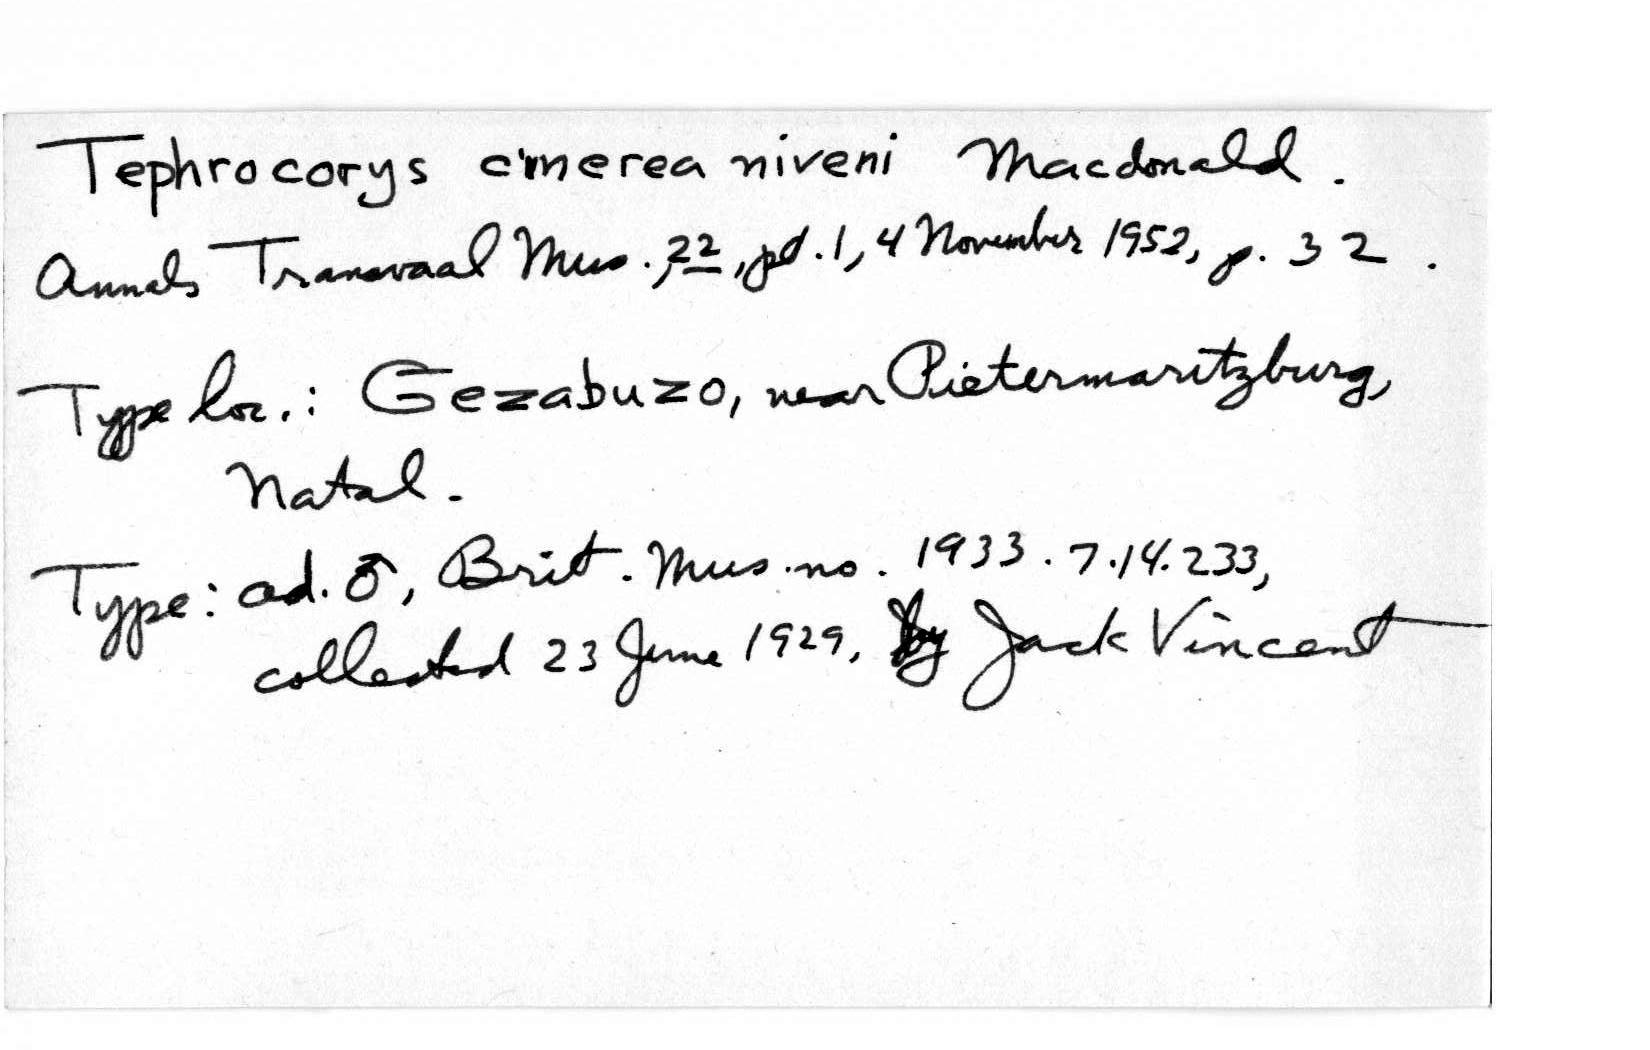 Tephrocorys cinerea niveni Macdonald.
Annals Transvaal Mus., 22, pt. 1, 4 November 1952, p. 32.
Type loc.: Gezabuzo, near Pietermaritzburg,
Natal.
Type: ad. ♂, Brit. Mus. no. 1933.7.14.233,
collected 23 June 1929, by Jack Vincent